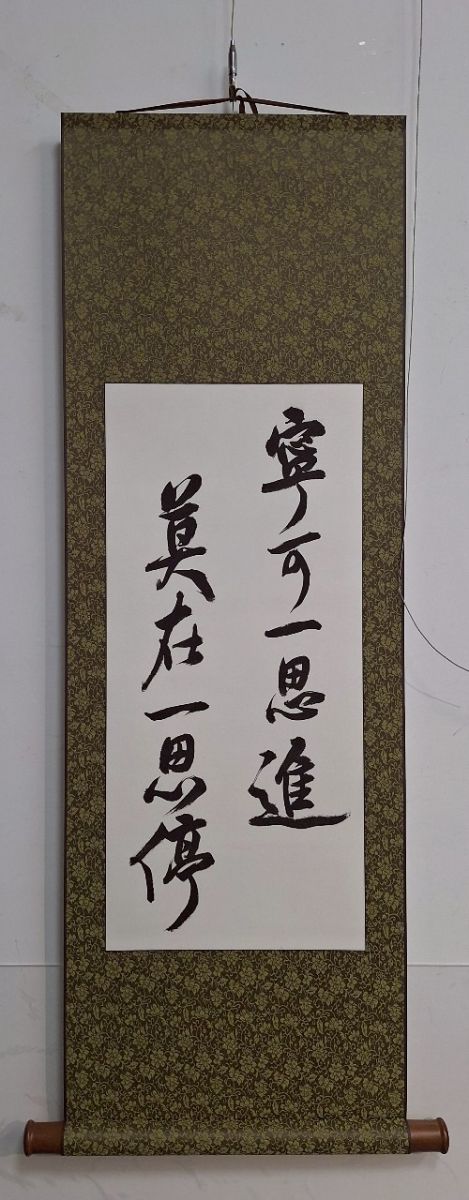 寧可一思進
莫在一思停